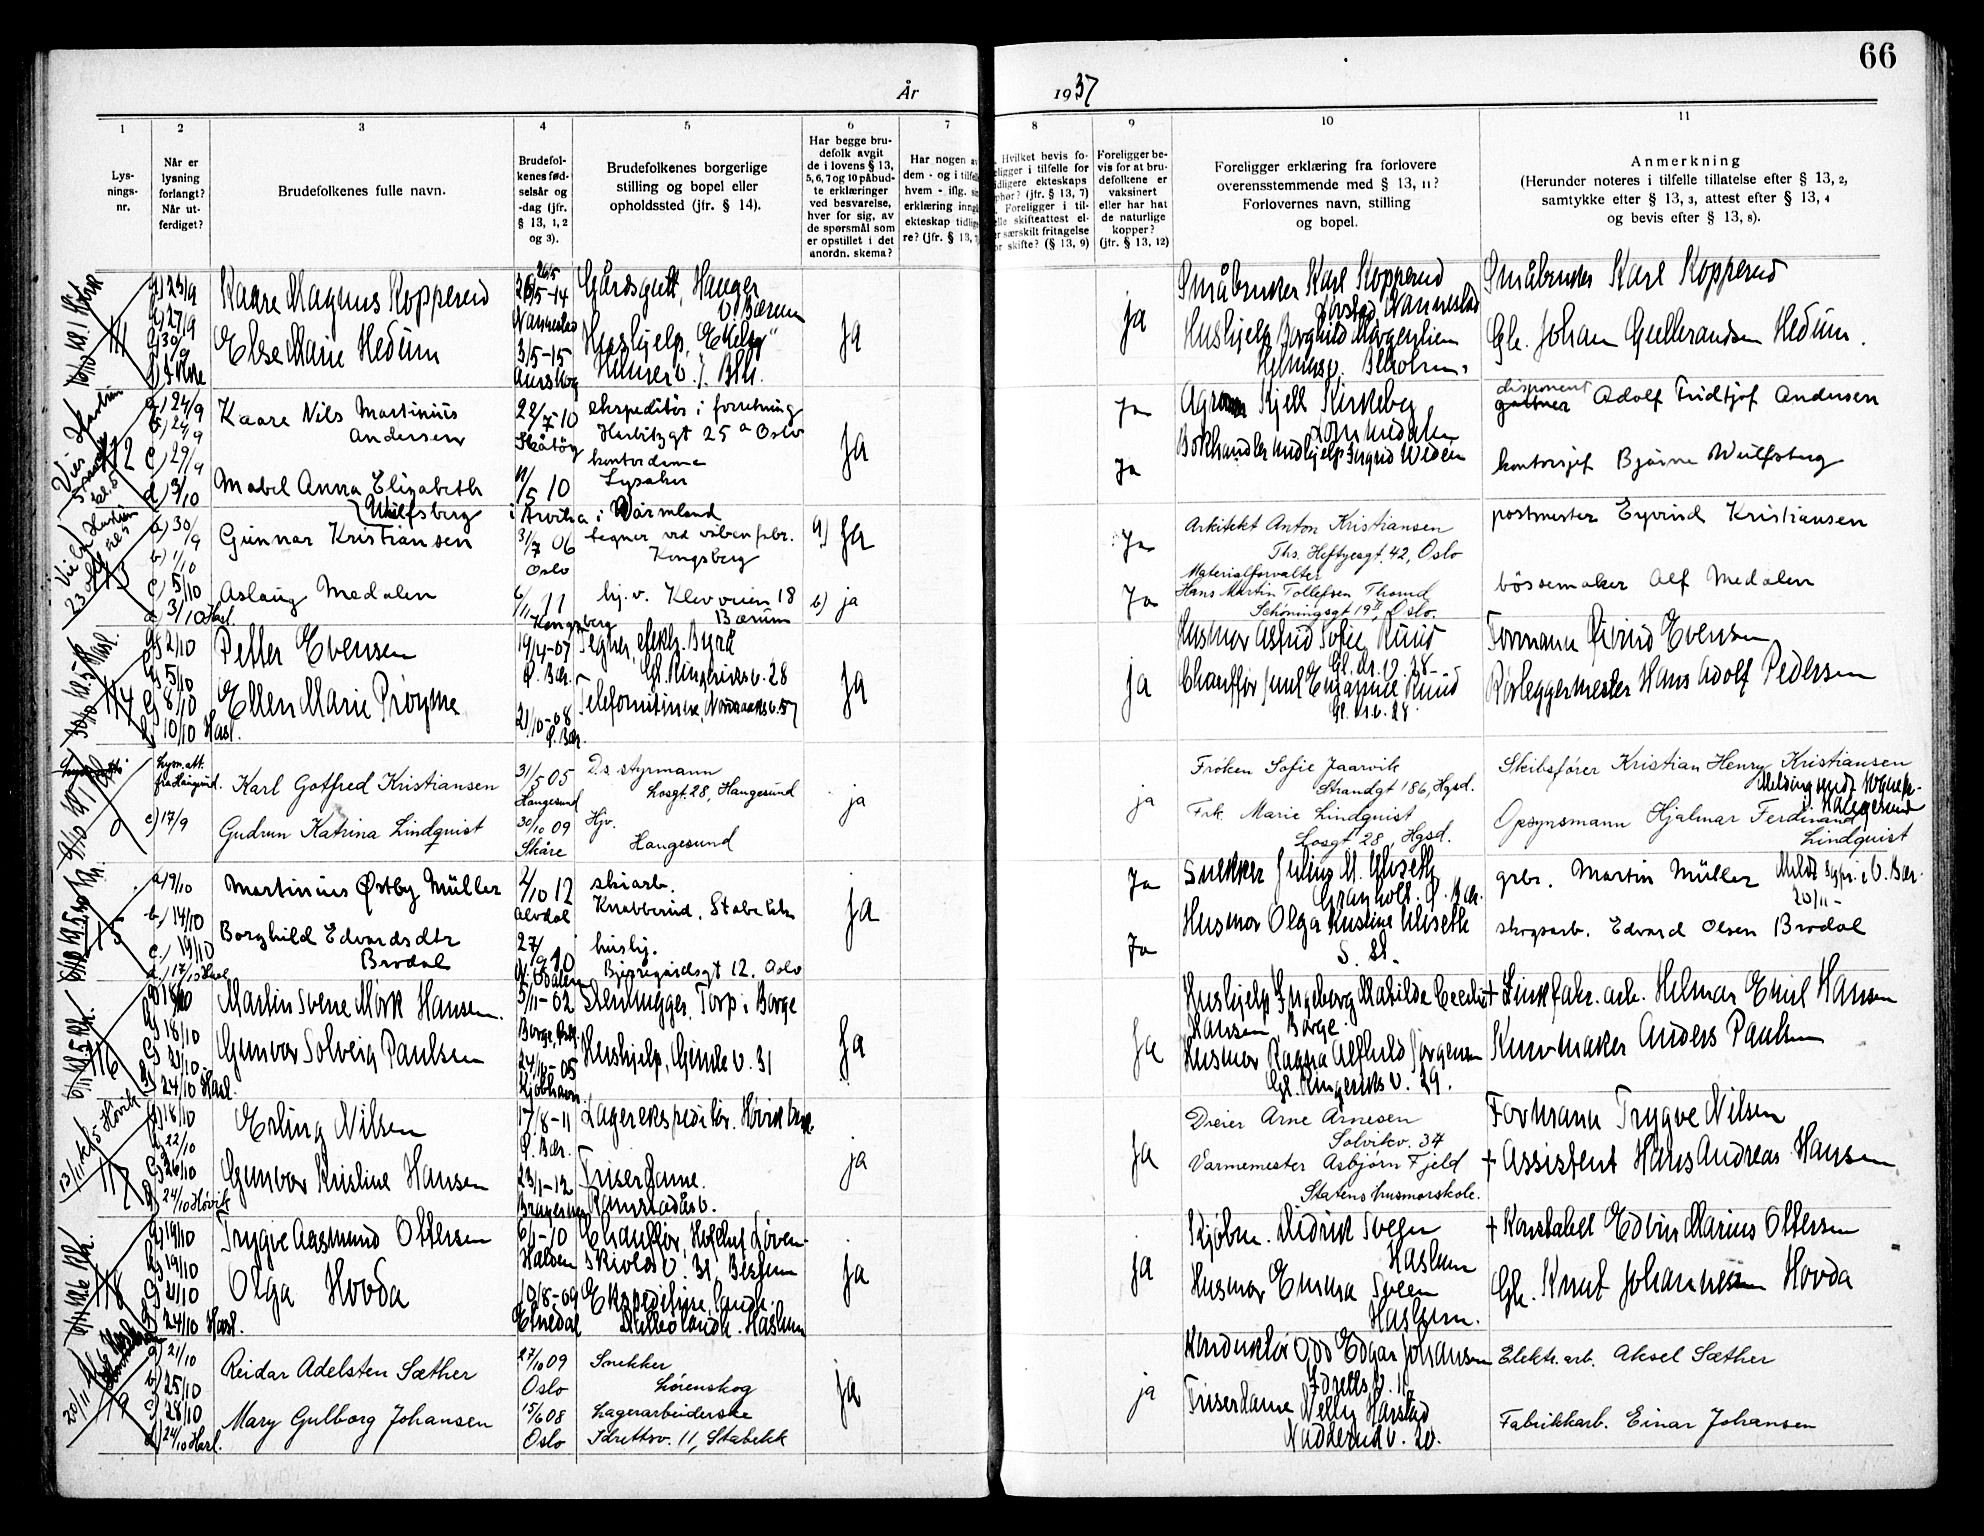 66
År 1937
1
2
3
4
5
6
7
8
9
10
11
Lys-
nings-
nr.
Når er
lysning
forlangt?
Når ut-
ferdiget?
Brudefolkenes fulle navn.
Brudefol-
kenes fød-
selsår og
-dag (jfr.
§ 13, 1, 2
og 3).
Brudefolkenes borgerlige
stilling og bopel eller
opholdssted (jfr. § 14).
Har begge bru-
defolk avgit
de i lovens § 13,
5, 6, 7 og 10 påbud-
te erklæringer
ved besvarelse,
hver for sig, av
de spørsmål som
er opstillet i det
anordn. skema?
Har nogen av
dem - og i tilfe
hvem - iflg. sin
erklæring inng
ekteskap tidlig
re? (jfr. § 13,
Hvilket bevis fo-
eligger i tilfelle for
idligere ekteskaps
phør? (jfr. § 13, 7)
Foreligger i til-
elle skifteattest el-
er særskilt fritagelse
or skifte? (§ 13, 9)
Foreligger be-
vis for at bru-
defolkene er
vaksinert
eller har hat
de naturlige
kopper?
(jfr. § 13, 12)
Foreligger erklæring fra forlovere
overensstemmende med § 13, 11?
Forlovernes navn, stilling
og bopel.
Anmerkning
(Herunder noteres i tilfelle tillatelse efter § 13, 2,
samtykke efter § 13, 3, attest efter § 13, 4
og bevis efter § 13, 8).
111
a) 23/9
b) 27/9
c) 30/9
Kaare Magnus Kopperud
Else Marie Hedum
26/5-14
Nannestad
3/5-15
Aurskog
Gårdsgutt, Hauger
V. Bærum
Hushjelp,
Ja
ja
Småbruker Karl Kopperud
Nannestad
Hushjelp Borghild
Småbruker Karl Kopperud
Gk. Johan Gulbrandsen Hedum.
112
a) 24/9
b) 24/9
c) 29/9
d) 3/10
Kaare Nils Martinius
Andersen
Mabel Anna Elizabeth
Wulfsberg
22/7-10
Skåtøy
11/5 10
i Arvika i Värmland
ekspeditør i forretning
Herbitzgt 25 a Oslo
kontordame
Lysaker
Ja
Ja
Ja
Kjell Kirkeby
Bokhandlermedhjelp Ingrid Widen
disponent
Adolf Fridtjof Andersen
kontorsjef Bjarne Wulfsberg
a) 30/9
b) 1/10
c) 5/10
d) 3/10 Hasl.
Gunnar Kristiansen
Aslaug Medalen
31/7 06
Oslo
6/11 11
Kongsberg
tegner ved våbenfabr.
Kongsberg
hj. v. Klevveien 18
Bærum
a) Ja
b) ja
Ja
Ja
Arkitekt Anton Kristiansen
Ths. Heftyesgt. 42, Oslo
Materialforvalter
Hans Martin Tollefsen Thomd
Schöningsgt 19 II, Oslo.
postmester Eyvind Kristiansen
bössemaker Alf Medalen
114
a) 2/10
b) 5/10
c) 8/10
d) 10/10 Hasl.
Petter Evensen
Ellen Marie Prøyme
19/4-07
Ø. Bær.
21/10-08
Ø. Bær.
Tegner, elektr. Byrå
Gl. Ringeriksv. 28
Telefonistinne,
Ja
ja
Husmor Astrid Sofie Ruud
Formann Øivind Evensen
Rørleggermester Hans Adolf Pedersen
Lysn.att.
fra Haugesund.
c) 17/9
Karl Gotfred Kristiansen
Gudrun Katrina Lindquist
31/5 05
Haugesund
30/10 09
Skåre
D.s. styrmann
Losgt. 28, Haugesund
Hjv.
Haugesund
ja
ja
Frøken Sofie Jaarvik
Strandgt 186, Hgsd.
Frk. Marie Lindquist
Losgt 28 Hgsd.
Skibsfører Kristian Henry Kristiansen
i Haugesund
Opsynsmann Hjalmar Ferdinand
Lindquist
115
a) 9/10
b) 14/10
c) 19/10
d) 17/10 Hasl
Martinius Østby Müller
Borghild Edvardsdtr
Brodal
2/10 12
Alvdal
27/9 10
N. Odalen
skiarb.
Knabberud, Stabekk
hushj.
Bjerregårdsgt 12. Oslo
ja
Ja
Ja
Snekker Julius M. Ulseth
Granholt. Ø. Bær.
Husmor Olga Kristine Ulseth
S. st.
grbr. Martin Müller
20/11-
skogsarb. Edvard Olsen Brodal
116
b) 18/10
c) 21/10
d) 24/10 Hasl.
Martin Svene Mørk Hansen.
Gunvor Solveig Paulsen
5/11-02
Borge, Østf.
24/10-05
Kjøbhavn.
Stenhugger, Torp i Borge
Hushjelp, Gimle v. 31
Ja
Ja
Hushjelp Ingeborg Mathilde Cecilie
Hansen, Borge.
Husmor Ragna Alfhild Jørgensen
Gl. Ringeriks v. 29.
+ Zinkfabr. arb. Hilmar Emil Hansen
Kurvmaker Anders Paulsen
117
a) 18/10
b) 22/10
c) 26/10
d) 24/10 Høvik
Erling Nilsen
Gunvor Kristine Hansen
17/8-11
Ø. Bær.
23/1-12
Lagerekspeditør.
Friserdame.
Ramstadås v.
ja
Ja
Dreier Arne Arnesen
Solvikv. 34
Varmemester Asbjørn Fjeld
Statens husmorskole.
Formann Trygve Nilsen
+ Assistent Hans Andreas Hansen
118
a) 19/10
b) 19/10
c) 21/10
d) 24/10 Hasl.
Trygve Aasmund Ottersen
Olga Hovda
6/1-10
Halden
10/8-09
Etnedal
Chauffør,
skiolds v. 31 Bestum
Ekspeditrise,
Haslum
ja
ja
Kjøbm. Didrik Sveen
Haslum
Husmor Emma Sveen
Haslum.
+ Konstabel Edvin Marius Ottersen
Gk. Knut Johannesen Hovda
a) 21/10
b) 25/10
c) 28/10
d) 24/10 Hasl.
Reidar Adelsten Sæther
Mary Gulborg Johansen
27/10 09
Oslo
15/6 08
Oslo
Snekker
Lørenskog
Lagerarbeiderske
Idrettsv. 11, Stabekk
Ja
ja
Konduktør Odd Edgar Johansen
Idretts v. 11
Friserdame Nelly Harstad
Nadderud v. 20.
Elektr. arb. Aksel Sæther
Fabrikkarb. Einar Johansen